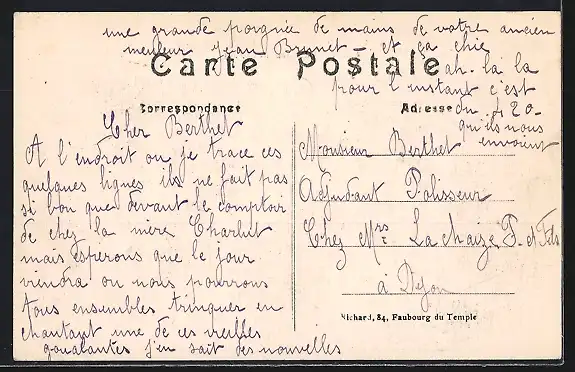 une grande poignée de mains de votre ancien
meneur Jean Brunet - et ça chie
Carte Postale
ah. la la
pour l'instant c'est
du 420-
qu'ils nous
envoient
Correspondance
Adresse
Cher Berthet
A l'endroit ou je trace ces
quelques lignes ils ne fait pas
si bon que devant le comptoir
de chez la mère Charlut
mais esperons que le jour
viendra ou nous pourrons
tous ensembles trinquer en
chantant une de ces vieilles
goualantes j'en sait des nouvelles
Monsieur Berthet
Adjudant Polisseur
Chez Mrs Lachaize P. et Fils
à Dijon
Nichard, 84, Faubourg du Temple